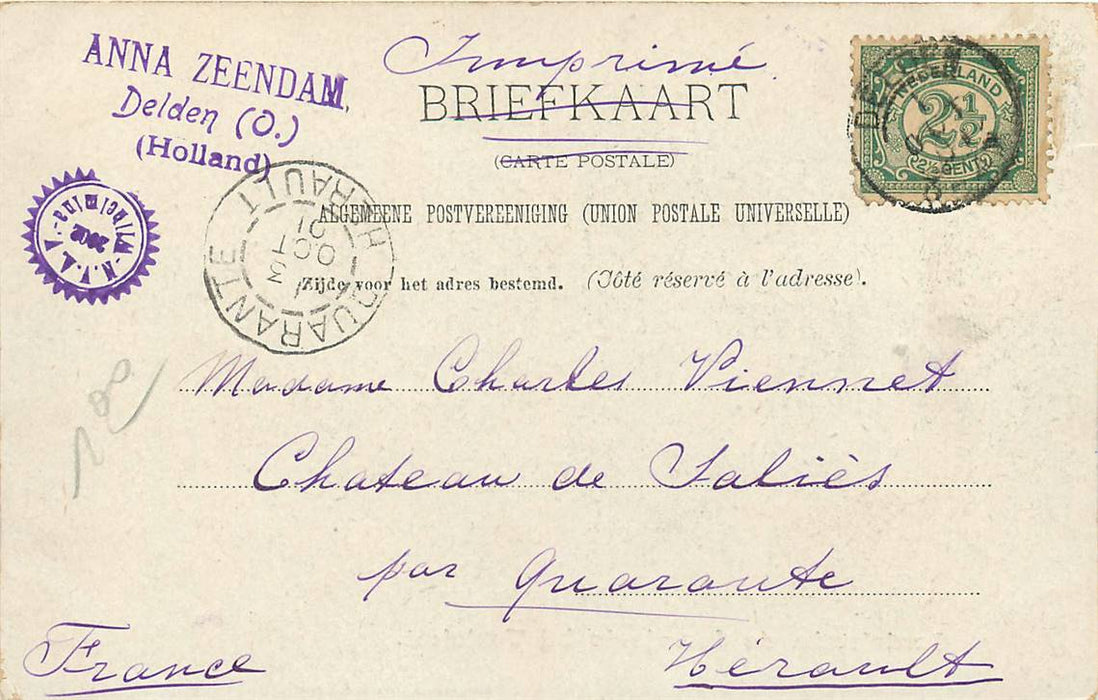 Imprimé
ANNA ZEENDAM,
Delden (O.)
(Holland)
BRIEFKAART
(CARTE POSTALE)
ALGEMEENE POSTVEREENIGING (UNION POSTALE UNIVERSELLE)
Zijde voor het adres bestemd. (Côté réservé à l'adresse).
NEDERLAND
2½
2½ CENT
Wilhelmina
QUARANTE
HERAULT
3
OCT
Madame Charles Viennet
Chateau de Saliès
par Quarante
Hérault
France